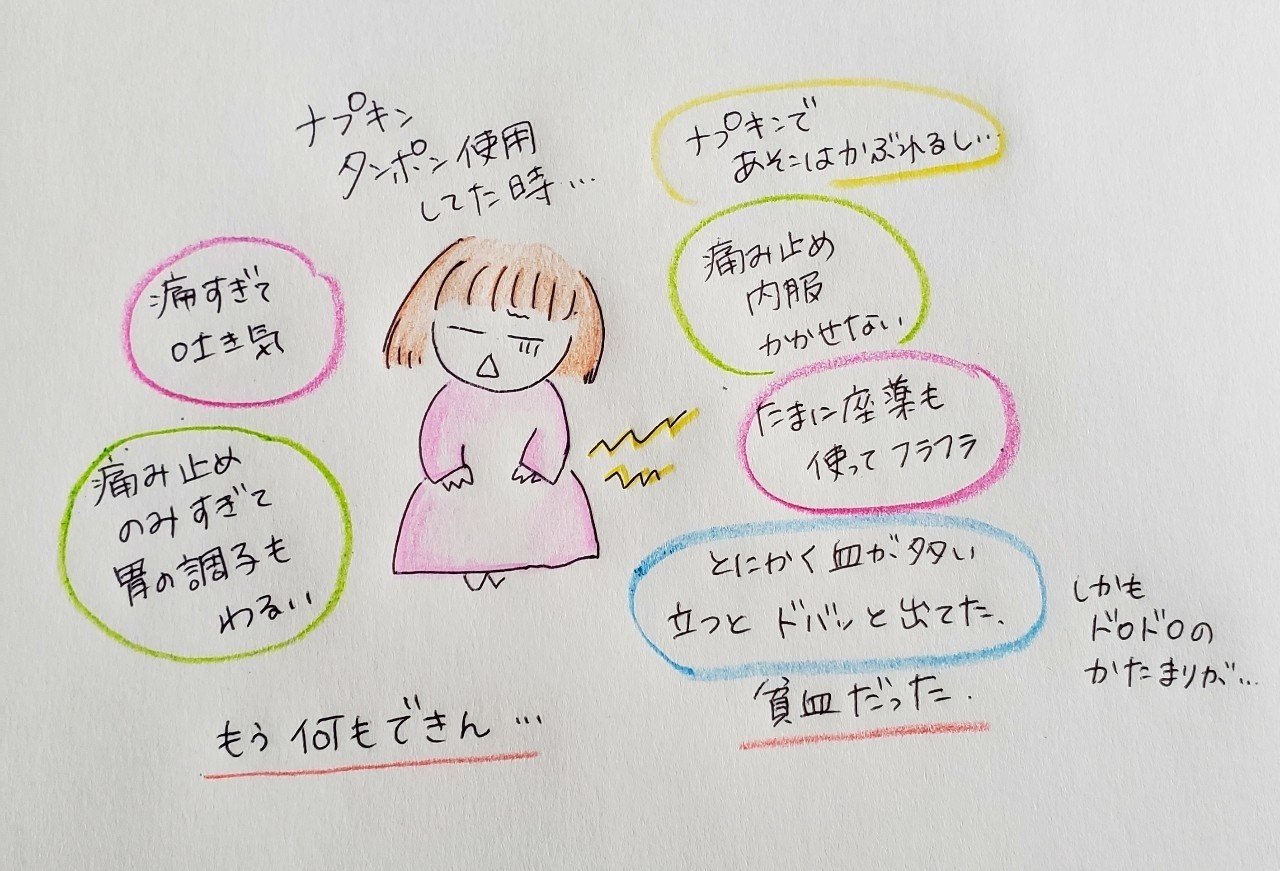 ナプキン
タンポン使用
してた時…
ナプキンで
あそこはかぶれるし…
痛すぎて
吐き気
痛み止め
内服
かかせない
たまに座薬も
使ってフラフラ
痛み止め
のみすぎて
胃の調子も
わるい
とにかく血が多い
立つとドバッと出てた、
しかも
ドロドロの
かたまりが…
貧血だった.
もう何もできん…